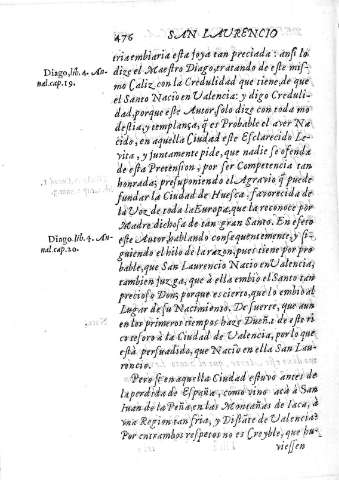 476 SAN LAURENCIO
tria embiaria esta joya tan preciada: ansi lo
dize el Maestro Diago, tratando de este mis-
mo Caliz, con la Credulidad que tiene de que
el Santo Nacio en Valencia: y digo Creduli-
dad, porque este Autor solo dize con toda mo
destia, y templança, q̃ es Probable el aver Na
cido, en aquella Ciudad este Esclarecido Le-
vita, y juntamente pide, que nadie se ofenda
de esta Pretension, por ser Competencia tan
honrada; presuponiendo el Agravio q̃ puede
fundar la Ciudad de Huesca, favorecida de
la Voz de toda la Europa, que la reconoce por
Madre dichosa de tan gran Santo. En efeto
este Autor, hablando consequentemente, y si-
guiendo el hilo de la razon, pues tiene por pro
bable, que San Laurencio Nacio en Valencia,
tambien juzga, que à ella embiò el Santo tan
precioso Don; porque es cierto, que lo embiò al
Lugar de su Nacimiento. De suerte, que aun
en los primeros tiempos haze Dueña de este ri
co tesoro à la Ciudad de Valencia, por lo que
està persuadido, que Nacio en ella San Lau-
rencio.
Pero si en aquella Ciudad estuvo antes de
la perdida de España, como vino acà à San
Iuan de la Peña, en las Montañas de Iaca, à
una Region tan fria, y Distãte de Valencia?
Por entrambos respetos no es Creyble, que hu-
viessen
Diago, lib. 4. An-
nal. cap. 19.
Diago, lib. 4. An-
nal. cap. 20.